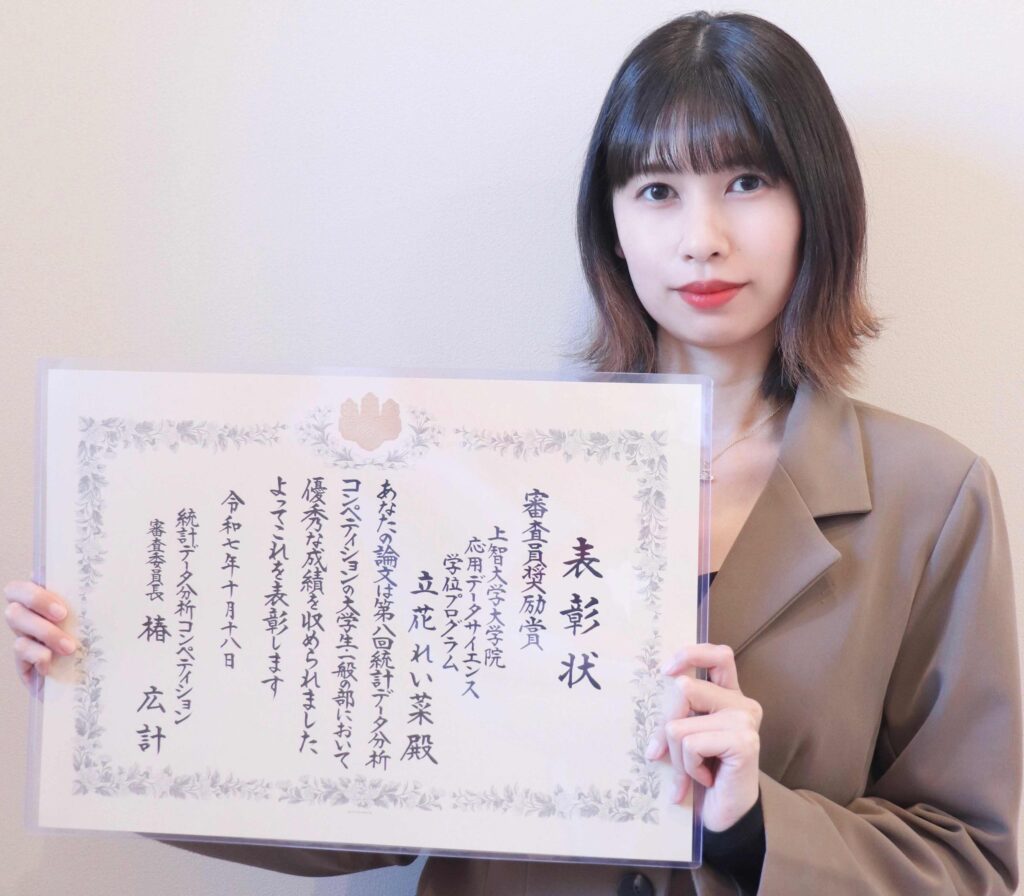 表彰状
審査員奨励賞
上智大学大学院
応用データサイエンス
学位プログラム
立花れい菜殿
あなたの論文は第八回統計データ分析
コンペティションの大学生・一般の部において
優秀な成績を収められました
よってこれを表彰します
令和七年十月十八日
統計データ分析コンペティション
審査委員長 椿 広計